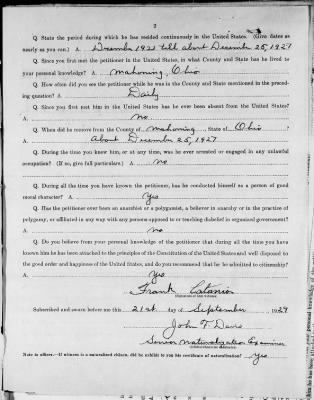 2
Q. State the period during which he has resided continuously in the United States. (Give dates as
nearly as you can.) A. December 1921 till about December 25, 1927
Q. Since you first met the petitioner in the United States, in what County and State has he lived to
your personal knowledge? A. Mahoning, Ohio
Q. How often did you see the petitioner while he was in the County and State mentioned in the preced-
ing question? A. Daily
Q. Since you first met him in the United States has he ever been absent from the United States?
A. no
Q. When did he remove from the County of Mahoning, State of Ohio ?
A. About December 25, 1927
Q. During the time you knew him, or at any time, was he ever arrested or engaged in any unlawful
occupation? (If so, give full particulars.) A. no
Q. During all the time you have known the petitioner, has he conducted himself as a person of good
moral character? A. Yes
Q. Has the petitioner ever been an anarchist or a polygamist, a believer in anarchy or in the practice of
polygamy, or affiliated in any way with any persons opposed to or teaching disbelief in organized government?
A. no
Q. Do you believe from your personal knowledge of the petitioner that during all the time you have
known him he has been attached to the principles of the Constitution of the United States and well disposed
to the good order and happiness of the United States, and do you recommend that he be admitted to citizenship?
A. yes
Frank Catanio
(Signature of the witness)
Subscribed and sworn before me this 21st day of September 1929
John T. Davis
Senior Naturalization Examiner
Note to officer.—If witness is a naturalized citizen, did he exhibit to you his certificate of naturalization? yes